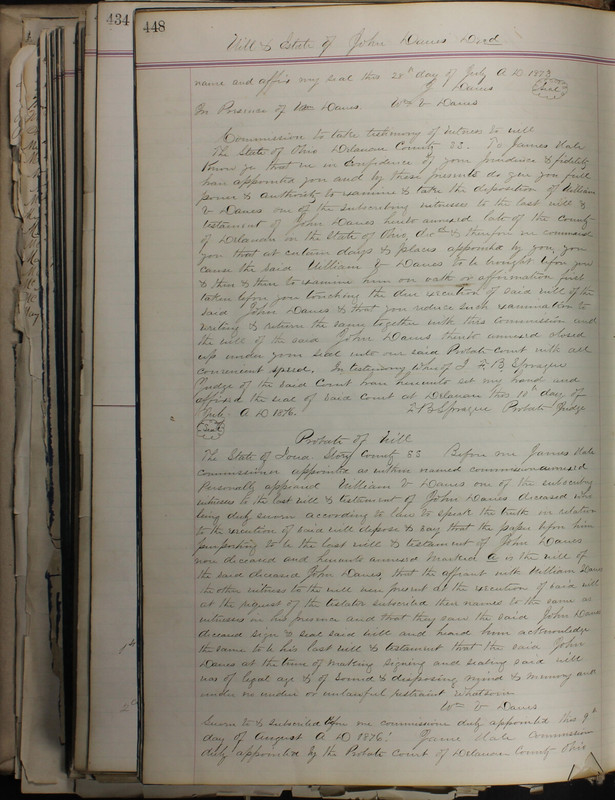 434
448
Will & Estate of John Davis Decd
name and affix my seal this 28th day of July A D 1873
J Davis Seal
In Presence of Wm Davis Wm V Davis
Commission to take testimony of witness to will
The State of Ohio Delaware County SS. To James Hale
Know ye that we in confidence of your prudence & fidelity
have appointed you and by these presents do give you full
power & authority to examine & take the deposition of William
V Davis one of the subscribing witnesses to the last will &
testament of John Davis hereto annexed late of the County
of Delaware in the State of Ohio, decd & therefore we command
you that at certain days & places appointed by you, you
cause the said William V Davis to be brought before you
& then & there to examine him on oath or affirmation first
taken before you touching the due execution of said will of the
said John Davis & that you reduce such examination to
writing & return the same together with this commission and
the will of the said John Davis thereto annexed closed
up under your seal unto our said Probate Court with all
convenient speed. In testimony whereof I F B Sprague
Judge of the said Court have hereunto set my hand and
affixed the seal of said Court at Delaware this 10th day of
July A D 1876. F B Sprague Probate Judge
Seal
Probate of Will
The State of Iowa Story County SS Before me James Hale
commissioner appointed as within named commission annexed
Personally appeared William V Davis one of the subscribing
witnesses to the last will & testament of John Davis deceased who
being duly sworn according to law to speak the truth in relation
to the execution of said will depose & say that the paper before him
purporting to be the last will & testament of John Davis
now deceased and hereunto annexed marked A is the will of
the said deceased John Davis, that the affiant with William Davis
the other witness to the will were present at the execution of said will
at the request of the testator subscribed their names to the same as
witnesses in his presence and that they saw the said John Davis
deceased sign & seal said will and heard him acknowledge
the same to be his last will & testament that the said John
Davis at the time of making signing and sealing said will
was of legal age & of sound & disposing mind & memory and
under no undue or unlawful restraint whatsoever
Wm V Davis
Sworn to & subscribed before me commissioner duly appointed this 9th
day of August A D 1876. James Hale Commissioner
duly appointed by the Probate Court of Delaware County Ohio